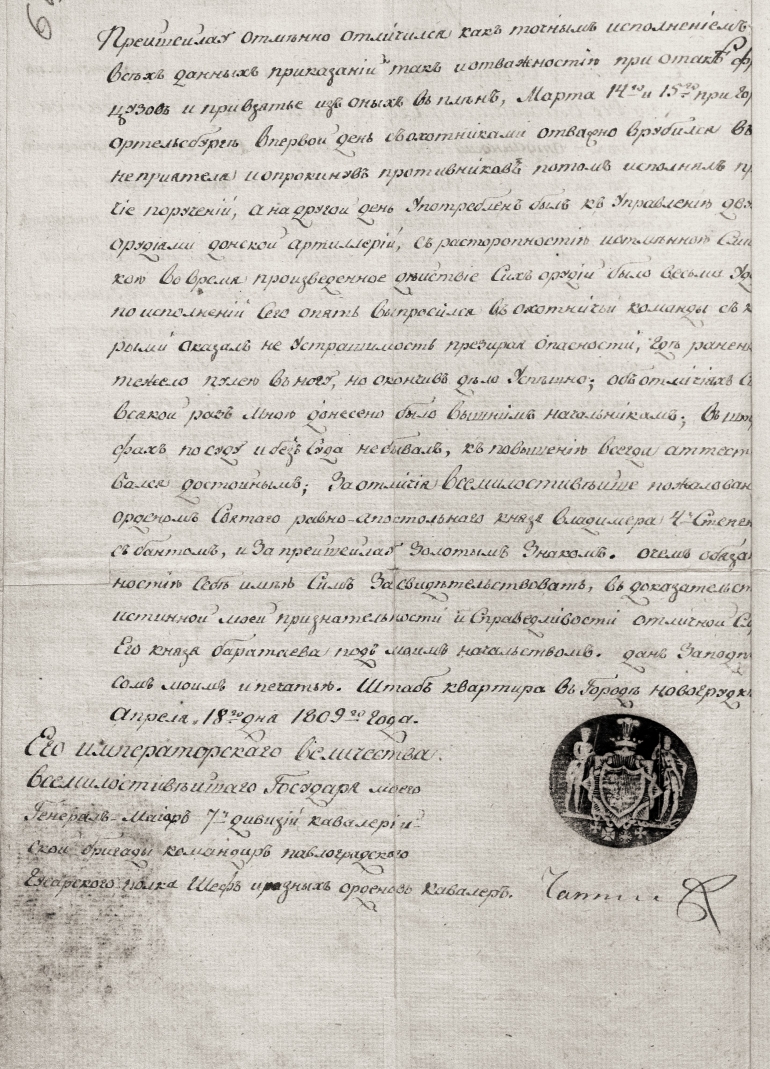 Прейтсилау отмѣнно отличился какъ точнымъ исполненіемъ
всѣхъ данныхъ приказаній такъ и отважностію при отакѣ фр
цузовъ и привзятье изъ оныхъ въ плѣнъ, Марта 14го и 15го при гор
ортельсбургѣ впервой день съ охотниками отважно врубился въ
непріятеля и опрокинувъ противниковъ потомъ исполнялъ пр
чіе порученій, а на другой день употребленъ былъ къ управленію дву
орудіами донской артиллеріи, съ расторопностію
кою во время произведенное дѣйствіе сихъ орудій было весьма уд
по исполненій сего опять выпросился въ охотничьи команды съ к
рыми оказалъ не устрашимость презирая опасности, гдѣ раненъ
тежело пулею въ ногу, но окончивъ дѣло успѣшно; объ отличіяхъ с
всякой разъ мною донесено было вышнимъ начальникамъ; въ шт
фахъ по суду и безъ суда не бывалъ, къ повышенію всегда аттест
вался достойнымъ; За отличія всемилостивѣйше пожалован
орденомъ святаго равно-апостольнаго князя владимера 4й степен
съ бантомъ, и за прейтсилау золотымъ знакомъ. очемъ обяза
ностію себѣ имѣю симъ засвидѣтельствовать, въ доказательст
истинной моей признательности и справедливости отличной с
Его князя баратаева подъ моимъ начальствомъ. данъ заподп
сомъ моимъ и печатью. Штабъ квартира въ городѣ новогрудк
Апреля, 18го дня 1809го года.
Его императорскаго величества
всемилостивѣйшаго Государя моего
Генералъ-Маіоръ 7й дивизіи кавалерій-
ской бригады командиръ павлоградскаго
гусарскаго полка Шефъ и разныхъ орденовъ кавалеръ. Чаплиц